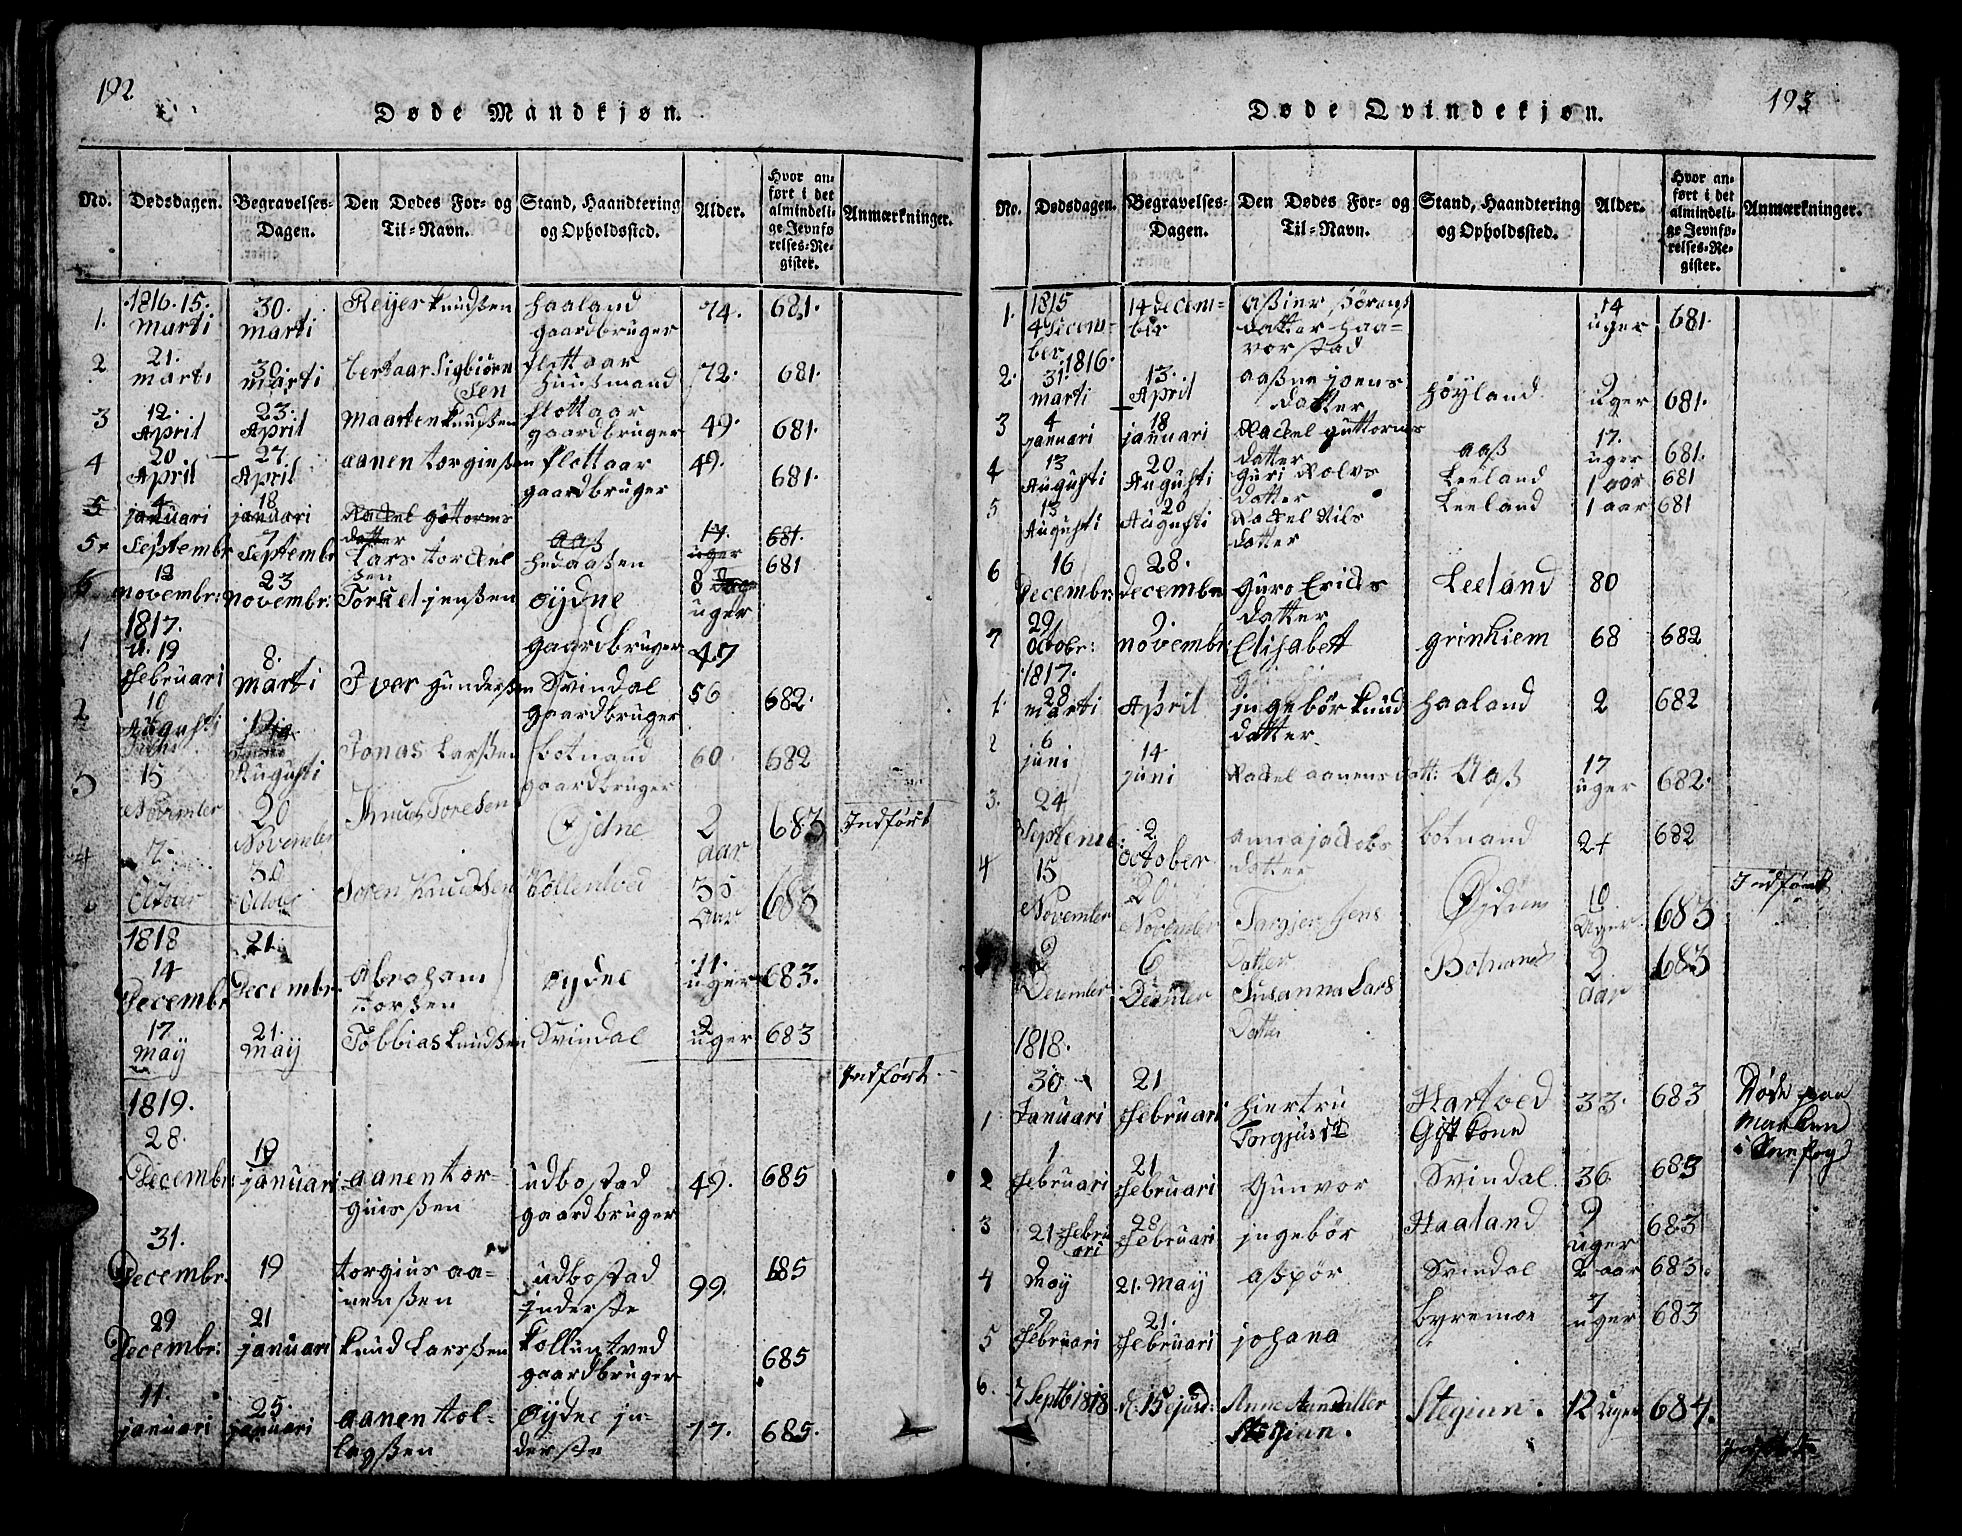 192
Døde Mandkjøn.
No. Dødsdagen. Begravelses-Dagen. Den Dødes For- og Til-Navn. Stand, Haandtering og Opholdssted. Alder. Hvor anført i det almindelige Jevnførelses-Register. Anmærkninger.
1. 1816. 15. Marti 30. Marti Reijer Knudsen Haaland gaardbruger 74. 681.
2 21. marti 30. marti flottaar Huusmand 72. 681.
3 12. April 23. April Maarten Knudsen flottaar gaardbruger 49. 681.
4 20 April 27. April aanen torginssen flottaar gaardbruger 49. 681.
5 4 januari 18 januari Rackel guttorms datter aas 17. uger 681.
5 1 Septembr 7 Septembr Lars torckelsen hedaassen 681
6 12 novembr: 23 novembr: Torkel jenssen øydne 8 uger
1817.
1 d. 19 februari 8. marti Iver gunderssen Svindal gaardbruger 47 56 682.
2 10 Augusti Augusti Jonas Larssen botnand gaardbruger 60. 682
3 15 November 20 November Knud Toresen Øjdne 2 aar 683 Indført
4 October 30 October Soren Knudsen Kollentved 35 Aar 683
1818
14 Decembr. 21. Decembr. Abraham torsen øydne 11. uger 683.
17 May 21. May Tobbias Knudsen Svindal 2 uger 683
Indført
1819.
28. Decembr: 19 januari aanen torgiussen udbostad gaardbruger 49. 685
31. Decembr. 19 torgius aanenssen udbostad jnderste 99. 685
29 Decembr: 21 januari knud Larssen Kolluntved gaardbruger 685
11. januari 25. januari aanen tollagssen Øydne jnderste 77. 685.
193
Døde Qvindekjøn.
No. Dødsdagen. Begravelses-Dagen. Den Dødes For- og Til-Navn. Stand, Haandtering og Opholdssted. Alder. Hvor anført i det almindelige Jevnførelses-Register. Anmærkninger.
1. 1815 4 Decem-ber 14 decem-ber Sørens datter haa-vorstad 14 uger 681.
2. 1816. 31. marti 13. April joens datter Höyland 9 uger 681.
3 4 januari 18 januari Rackel guttorms datter aas 17. uger 681.
4 13 Augusti 20 Augusti guri Rolvs datter Leeland 1 aar 681
5 13 Augusti 20 Augusti Rackel Nils datter Leeland 1 aar 681
6 16 Decembr: 28. decembr guro Ericks datter Leeland 80
7 29 octobr: 9. novembr: Elisabett grinhiem 68 682
1817.
1. 28 marti 1 April jngebör knud datter haaland 2 682
2 6 juni 14 juni Rackel aanens datt: Aas 17 uger 682.
3. 24 Septemb: 2 october anna jackobs datter botnand 24 682
4 15 November 20 November Targjer Jens Datter 10 Uger 683 Indført
2 December 6 December Susanna Lars Datter Botnand 2 aar 683
1818.
1 30 Januari 21 februari hiertru Torgjusd Hartved Gift kone 33. 683 Døde paa Marken i Sneefog
2 1 februari 21 februari Gunvor Svindal 36. 683
3 21 februari 28 februari jngebör Haaland 9 uger 683
4 May 21. May aspör Svindal 2 aar 683.
5 9 februari 21. februari johana byremoe 7 uger 683
6. 7 Septb 1818 d. 15 ejusd: Anne Stegiun. Stegiun. 12 Uger 684.